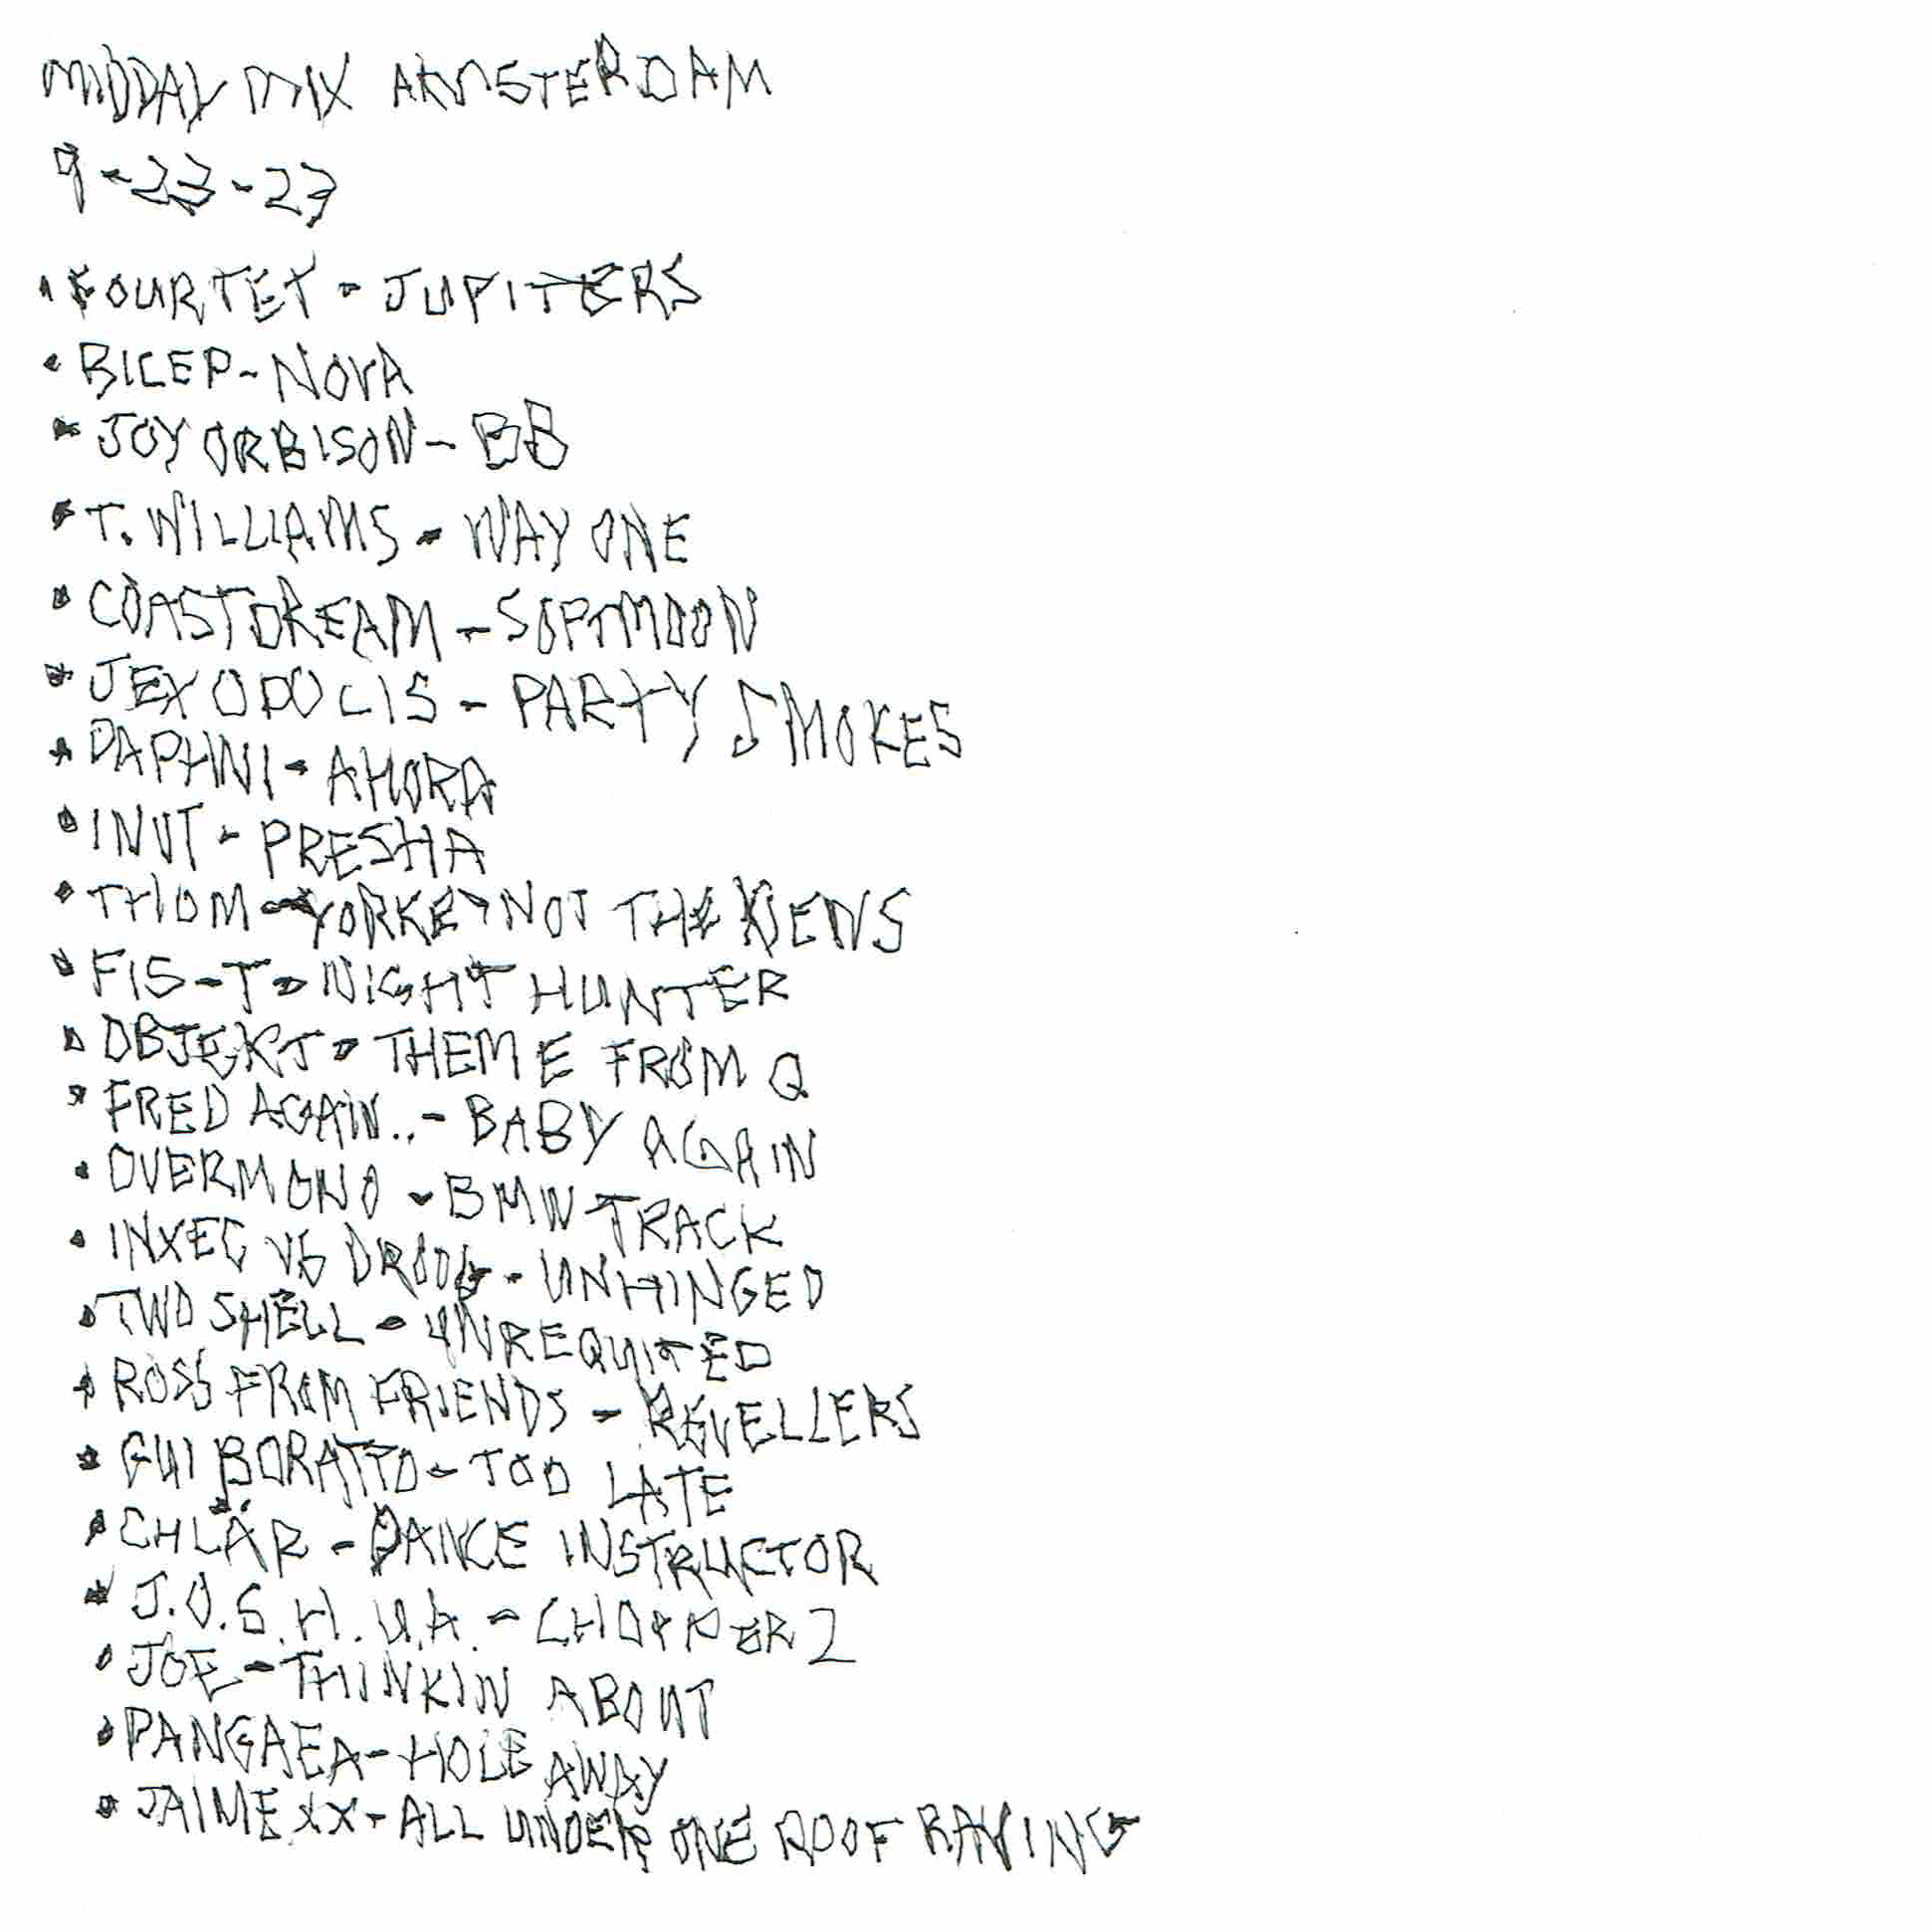 MIDDAY MIX AMSTERDAM
9-23-23
• FOURTET - JUPITERS
• BICEP - NOVA
• JOY ORBISON - BB
• T. WILLIAMS - WAY ONE
• COASTDREAM - SOFTMOON
• JEX OPOLIS - PARTY SMOKES
• DAPHNI - AHORA
• INVT - PRESHA
• THOM YORKE - NOT THE NEWS
• FIS-T - NIGHT HUNTER
• OBJEKT - THEME FROM Q
• FRED AGAIN.. - BABY AGAIN
• OVERMONO - BMW TRACK
• INXEC VS DROOG - UNHINGED
• TWO SHELL - UNREQUITED
• ROSS FROM FRIENDS - REVELLERS
• GUI BORATTO - TOO LATE
• CHLÄR - DANCE INSTRUCTOR
• J.O.S.H.U.A. - CHOPPER 2
• JOE - THINKIN ABOUT
• PANGAEA - HOLE AWAY
• JAIME XX - ALL UNDER ONE ROOF RAVING